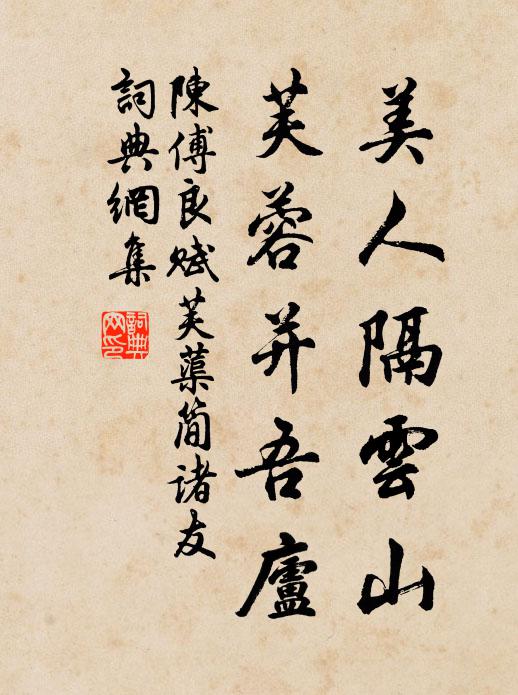 美人隔雲山
芙蓉并吾廬
陳傅良賦芙蕖简諸友
詞典網集
詞典
网印